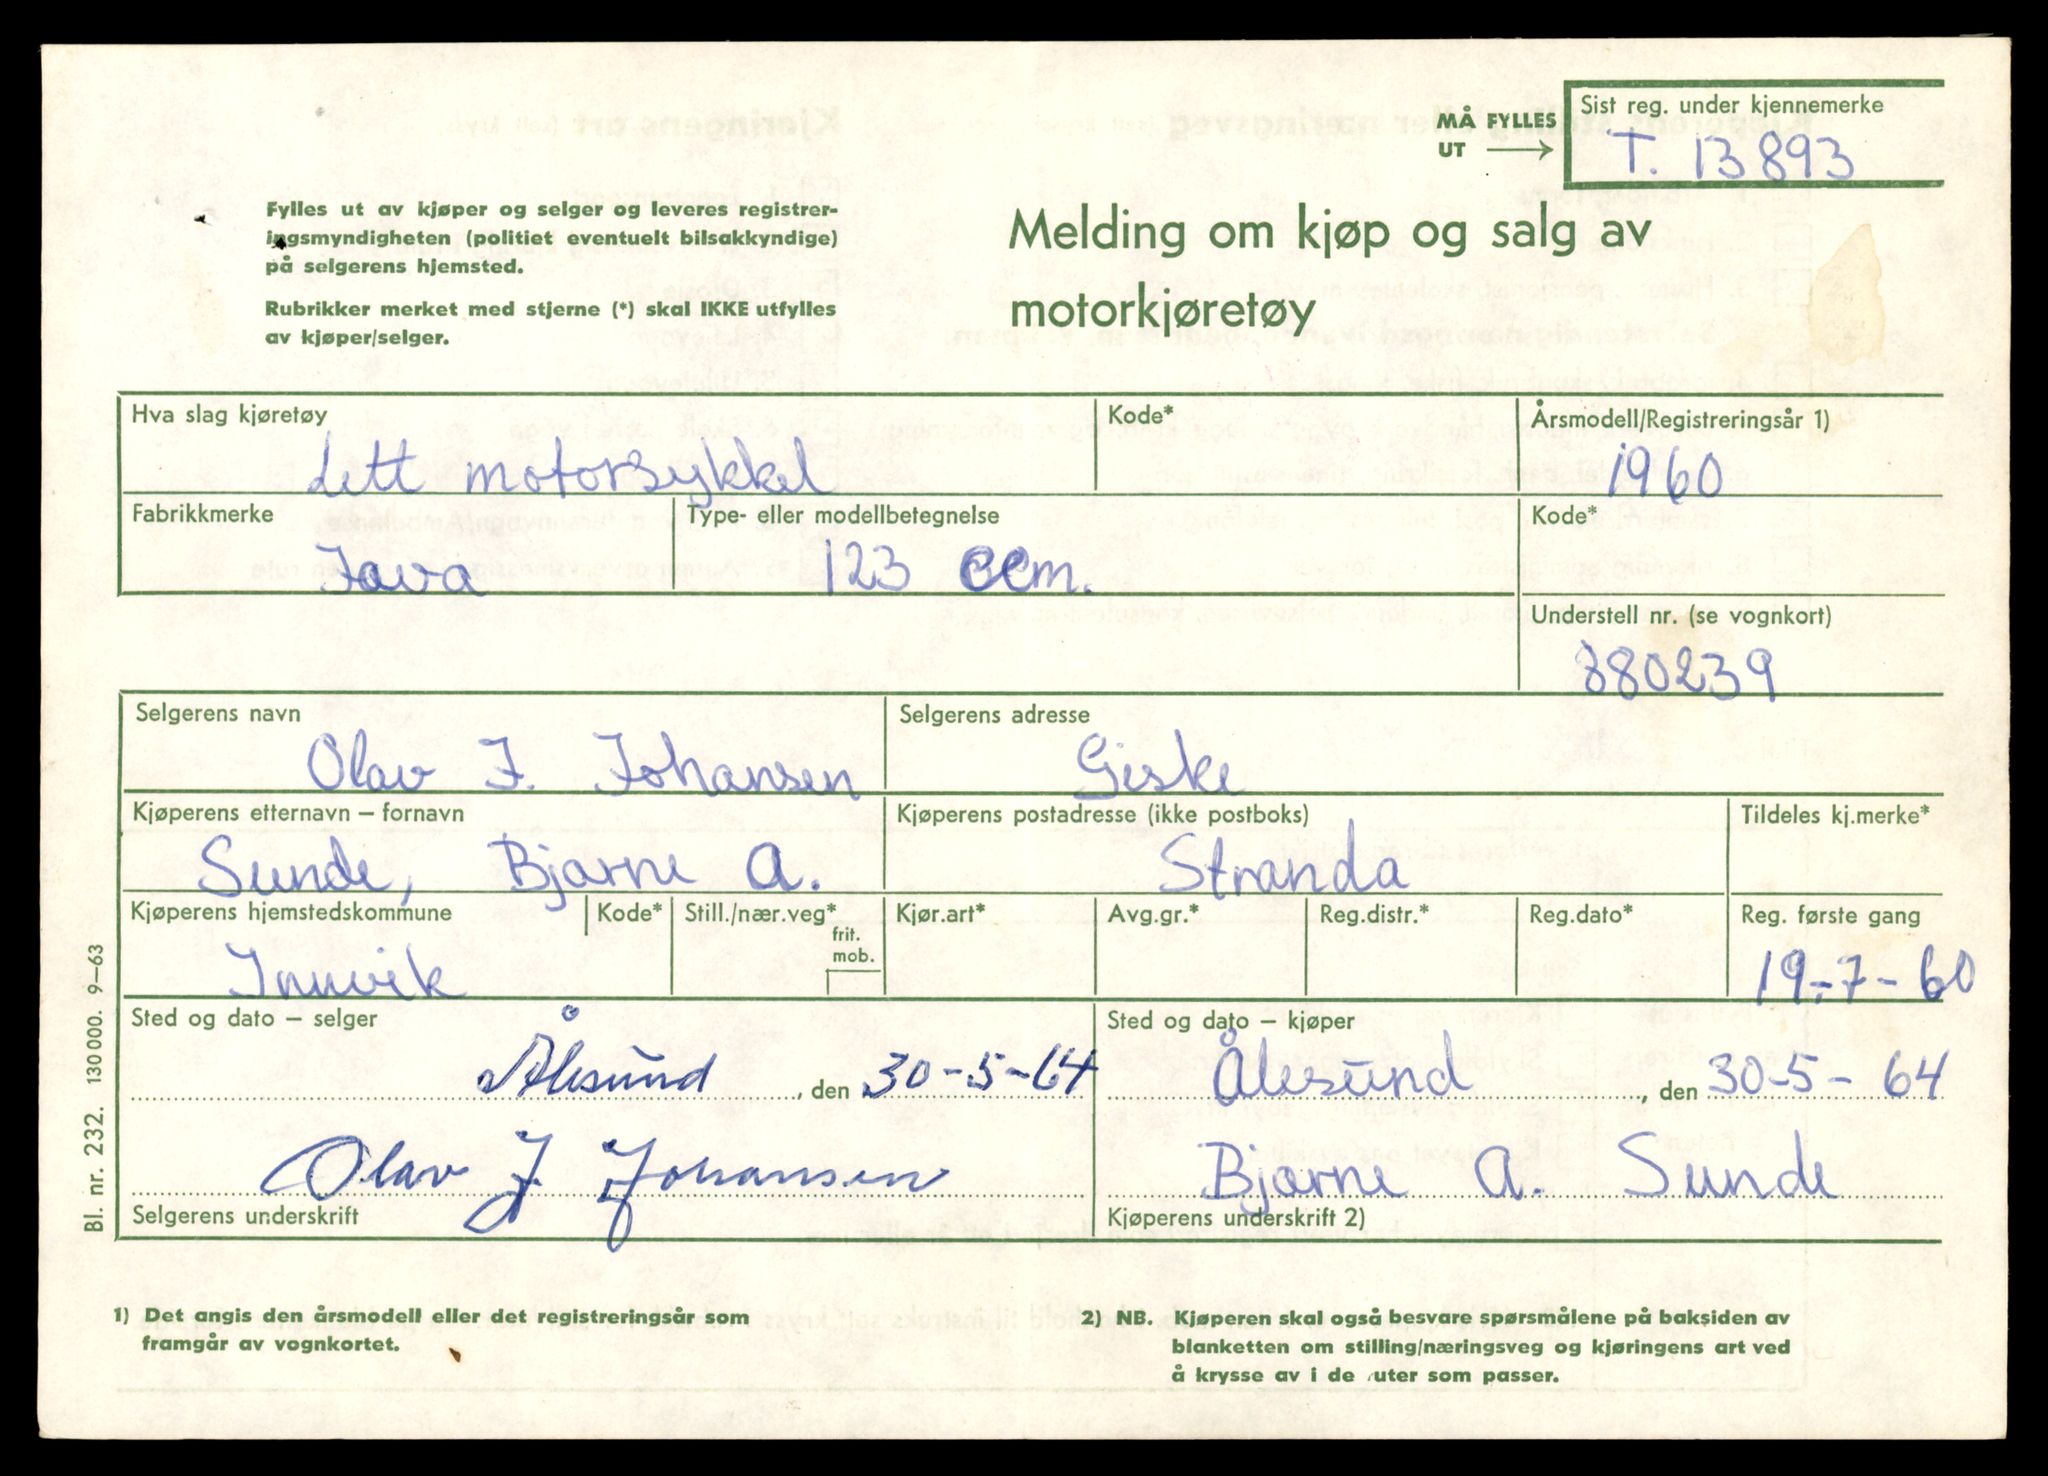 MÅ FYLLES
UT
Sist reg. under kjennemerke
T. 13893
Fylles ut av kjøper og selger og leveres registrer-
ingsmyndigheten (politiet eventuelt bilsakkyndige)
på selgerens hjemsted.
Rubrikker merket med stjerne (*) skal IKKE utfylles
av kjøper/selger.
Melding om kjøp og salg av
motorkjøretøy
Hva slag kjøretøy
Lett motorsykkel
Kode*
Årsmodell/Registreringsår 1)
1960
Fabrikkmerke
Java
Type- eller modellbetegnelse
123 ccm.
Kode*
Understell nr. (se vognkort)
880239
Selgerens navn
Olav J. Johansen
Selgerens adresse
Giske
Kjøperens etternavn – fornavn
Sunde, Bjarne A.
Kjøperens postadresse (ikke postboks)
Stranda
Tildeles kj.merke*
Kjøperens hjemstedskommune
Innvik
Kode*
Still./nær.veg*
frit.
mob.
Kjør.art*
Avg.gr.*
Reg.distr.*
Reg.dato*
Reg. første gang
19-7-60
Sted og dato – selger
Ålesund, den 30-5-64
Olav J Johansen
Selgerens underskrift
Sted og dato – kjøper
Ålesund, den 30-5-64
Bjarne A. Sunde
Kjøperens underskrift 2)
Bl. nr. 232. 130 000. 9–63
1) Det angis den årsmodell eller det registreringsår som
framgår av vognkortet.
2) NB. Kjøperen skal også besvare spørsmålene på baksiden av
blanketten om stilling/næringsveg og kjøringens art ved
å krysse av i de ruter som passer.